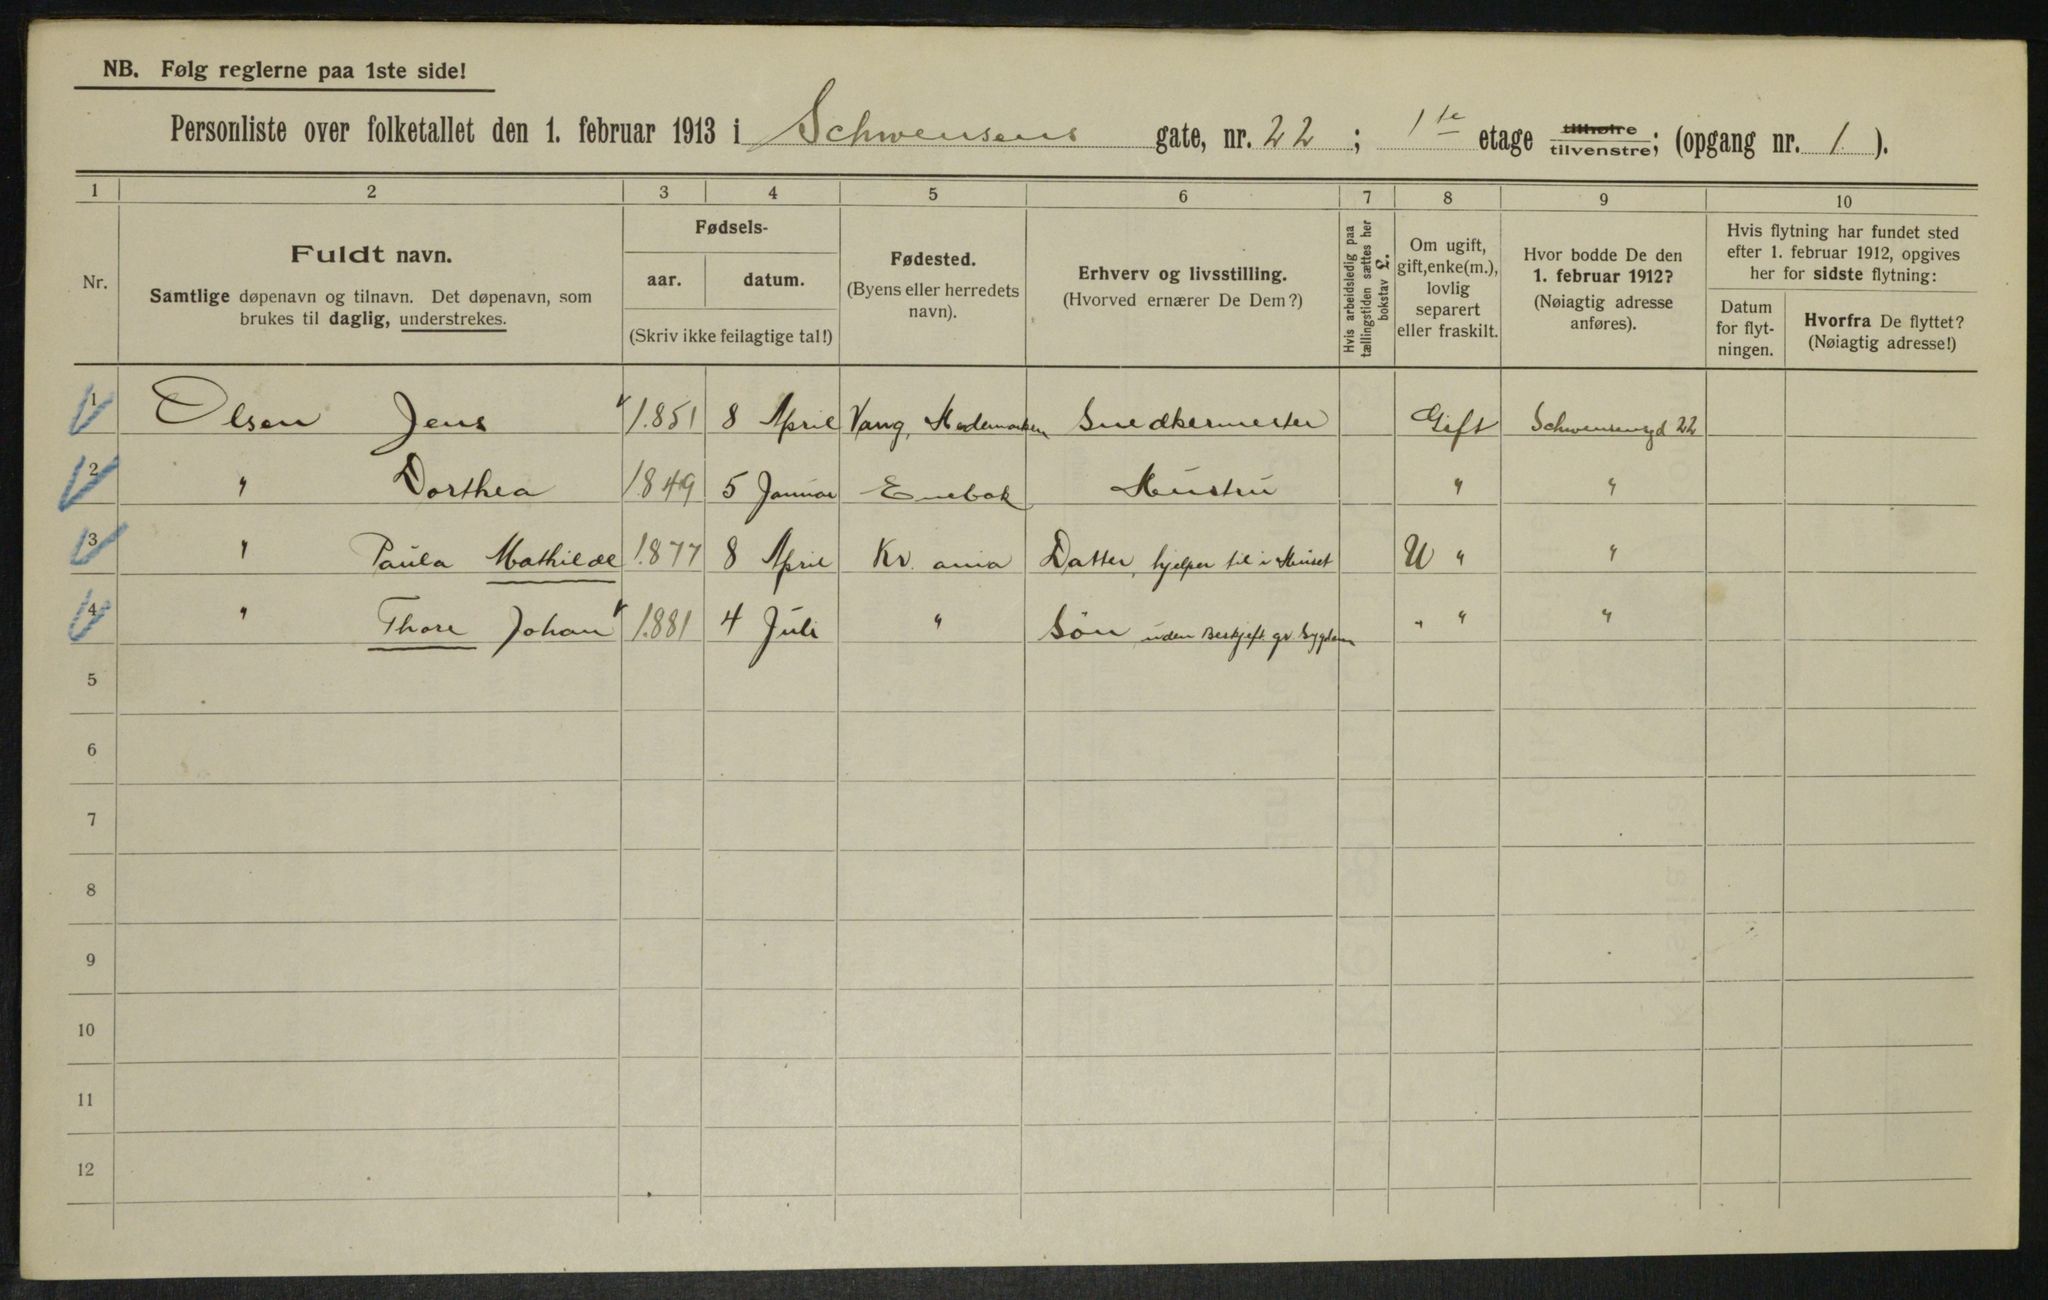 NB. Følg reglerne paa 1ste side!
Personliste over folketallet den 1. februar 1913 i Schwensens gate, nr. 22 ; 1 te etage tilhøire tilvenstre; (opgang nr. 1 ).
1 2 3 4 5 6 7 8 9 10
Nr.
Fuldt navn.
Samtlige døpenavn og tilnavn. Det døpenavn, som
brukes til daglig, understrekes.
Fødsels-
aar. datum.
(Skriv ikke feilagtige tal!)
Fødested.
(Byens eller herredets
navn).
Erhverv og livsstilling.
(Hvorved ernærer De Dem?)
Hvis arbeidsledig paa
tællingstiden sættes her
bokstav L.
Om ugift,
gift, enke(m.),
lovlig
separert
eller fraskilt.
Hvor bodde De den
1. februar 1912?
(Nøiagtig adresse
anføres).
Hvis flytning har fundet sted
efter 1. februar 1912, opgives
her for sidste flytning:
Datum
for flyt-
ningen.
Hvorfra De flyttet?
(Nøiagtig adresse!)
1 Olsen Jens 1851 8 April Vang, Hedemarken Snedkermester Gift Schwensensgd 22
2 " Dorthea 1849 5 Januar Enebak Hustru " "
3 " Paula Mathilde 1877 8 April Kr. ania Datter, hjelper til i Huset U " "
4 " Thore Johan 1881 4 Juli " Sön uden Beskjeft. gr. Sygdom " " "
5
6
7
8
9
10
11
12